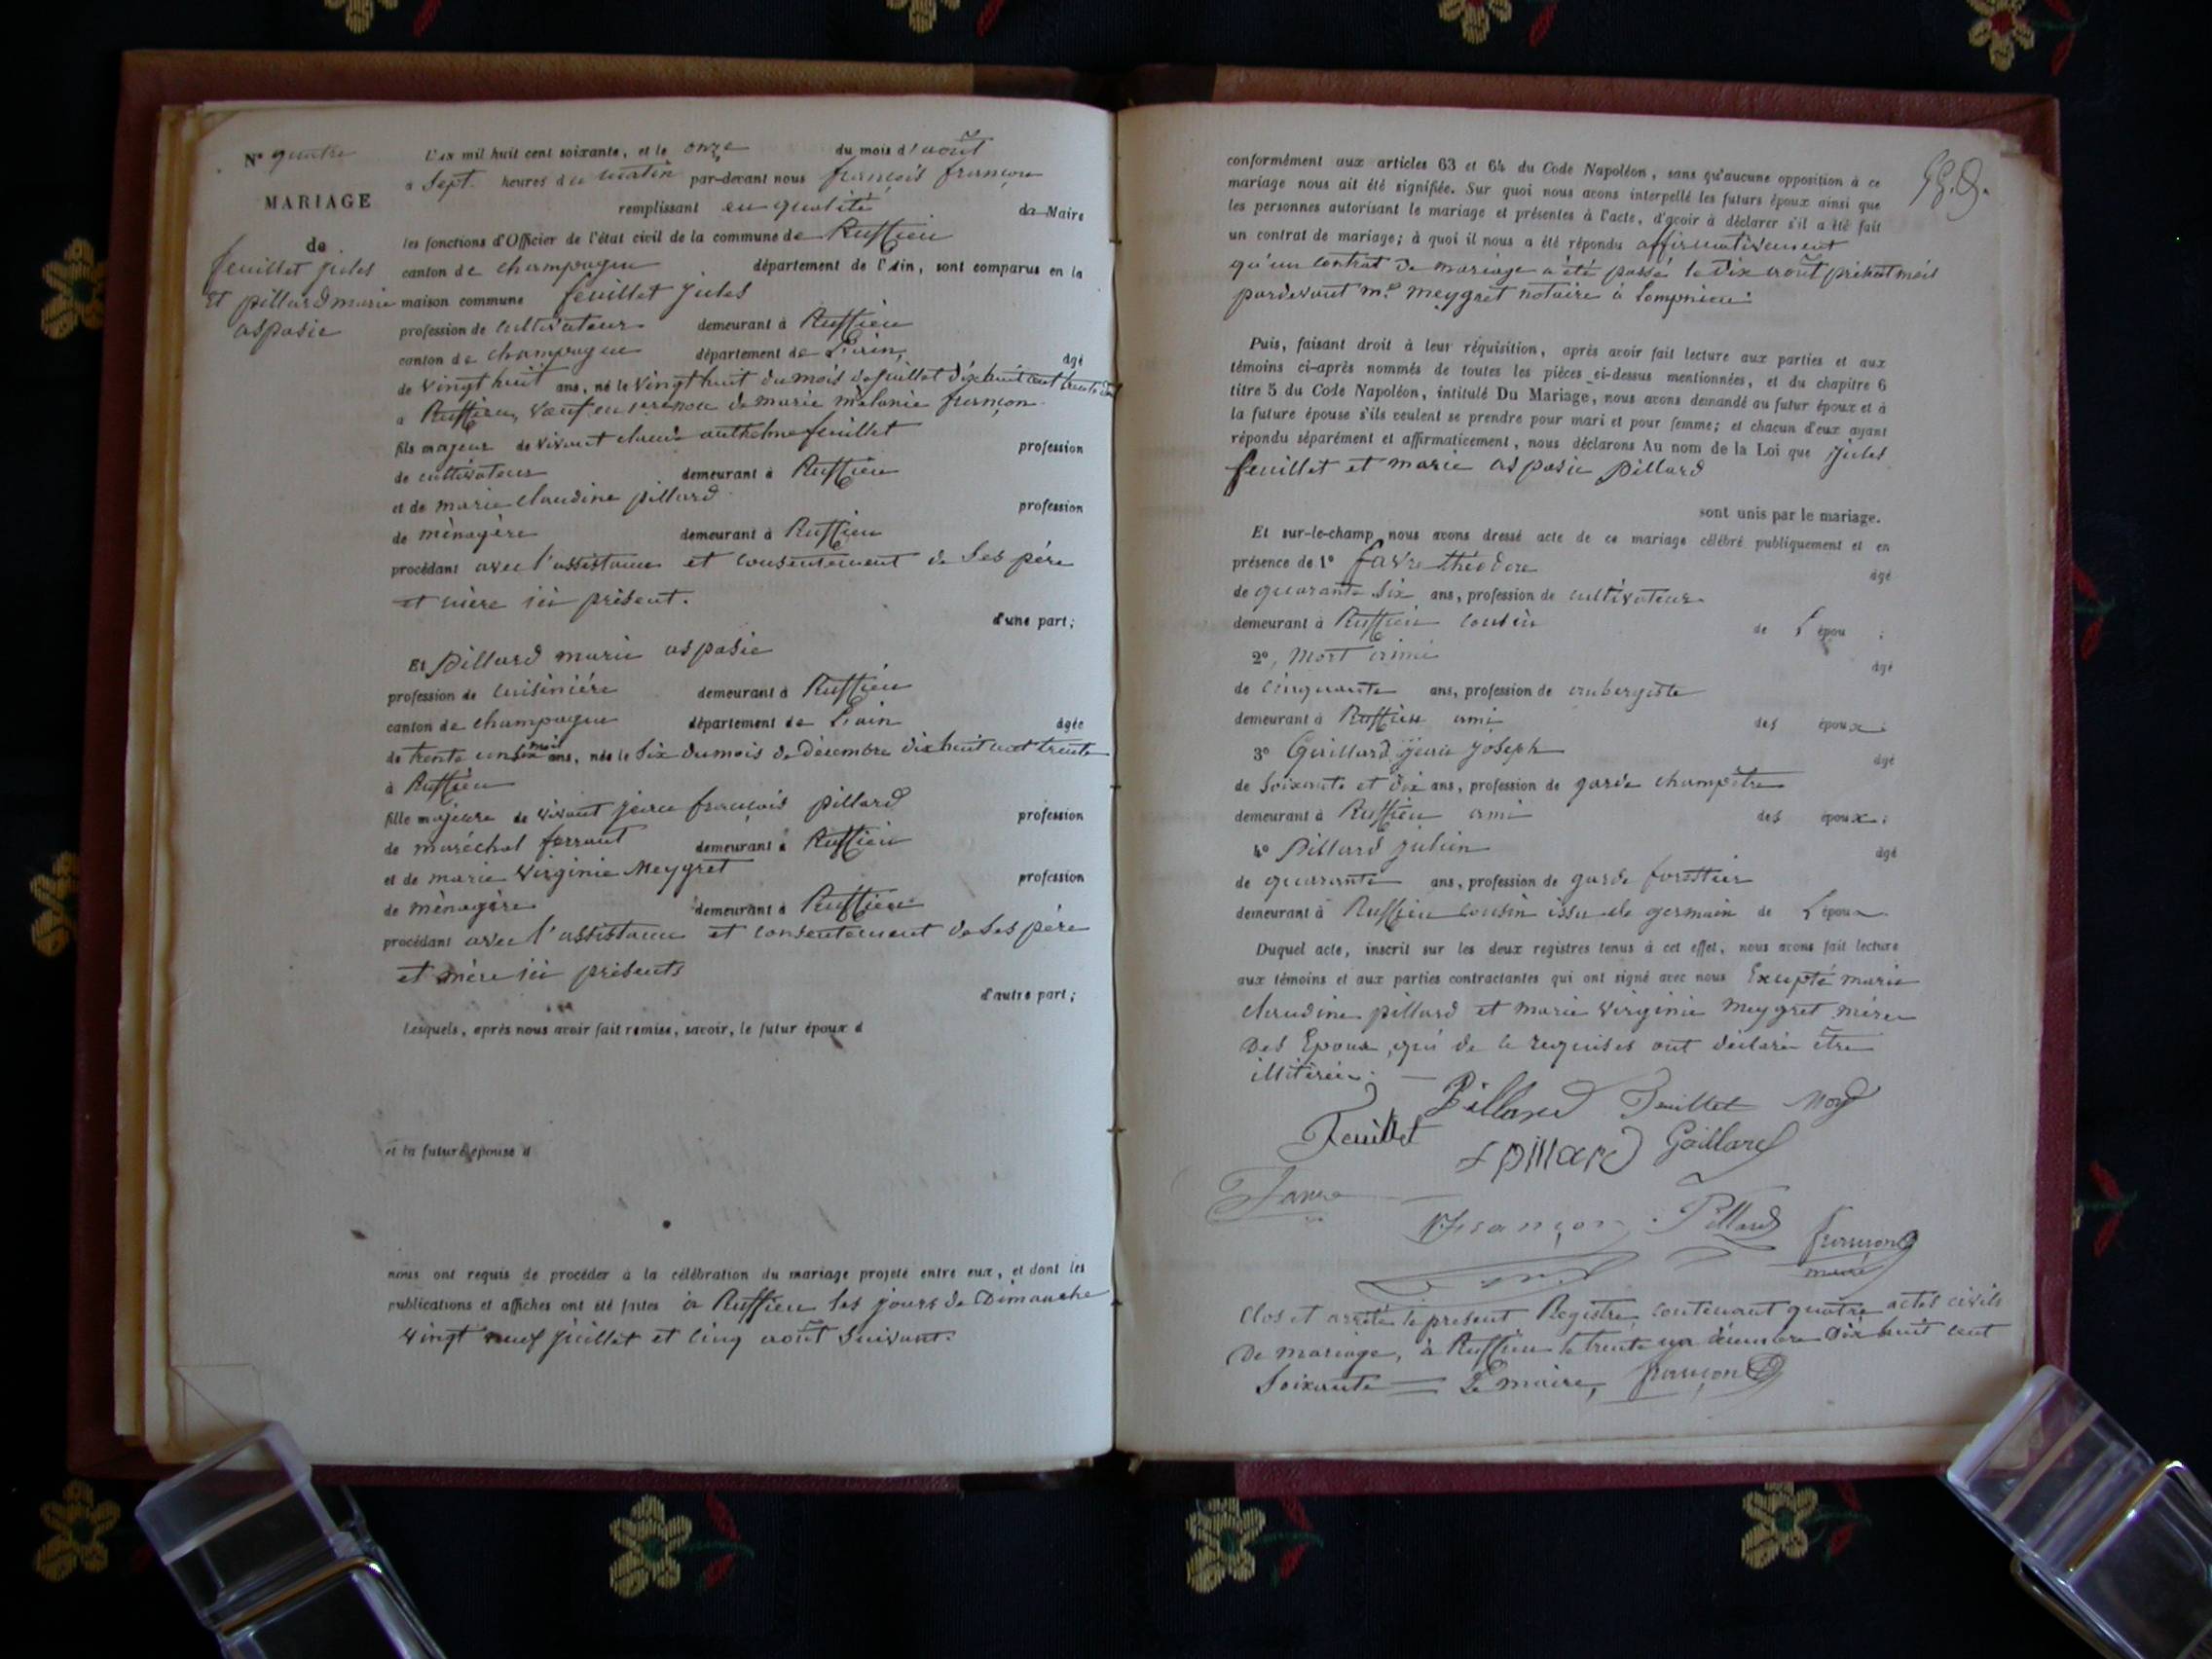 N° quatre
MARIAGE
de
feuillet jules
et pillard marie
aspasie
L'an mil huit cent soixante, et le onze du mois d'août
à Sept heures du matin par-devant nous françois françon
remplissant en qualité de Maire
les fonctions d'Officier de l'état civil de la commune de Ruffieu
canton de champagne département de l'Ain, sont comparus en la
maison commune feuillet jules
profession de cultivateur demeurant à Ruffieu
canton de champagne département de L'ain, âgé
de vingt huit ans, né le vingt huit du mois de juillet dix huit cent trente
à Ruffieu, veuf en de marie mélanie françon
fils majeur de vivant claude anthelme feuillet profession
de cultivateur demeurant à Ruffieu
et de marie claudine pillard profession
de ménagère demeurant à Ruffieu
procédant avec l'assistance et consentement de Ses père
et mère ici présent.
d'une part;
Et pillard marie aspasie
profession de cuisinière demeurant à Ruffieu
canton de champagne département de L'ain âgée
de trente mois ans, née le Six du mois de décembre dix huit cent trente
à Ruffieu
fille majeure de vivant jean françois pillard profession
de maréchal ferrant demeurant à Ruffieu
et de marie Virginie Meygret profession
de ménagère demeurant à Ruffieu
procédant avec l'assistance et consentement de Ses père
et mère ici présents
d'autre part;
Lesquels, après nous avoir fait remise, savoir, le futur époux d
et la future épouse d
nous ont requis de procéder à la célébration du mariage projeté entre eux, et dont les
publications et affiches ont été faites à Ruffieu les jours de Dimanche
vingt neuf juillet et cinq août Suivant.
conformément aux articles 63 et 64 du Code Napoléon, sans qu'aucune opposition à ce
mariage nous ait été signifiée. Sur quoi nous avons interpellé les futurs époux ainsi que
les personnes autorisant le mariage et présentes à l'acte, d'avoir à déclarer s'il a été fait
un contrat de mariage; à quoi il nous a été répondu affirmativement
qu'un contrat de mariage a été passé le dix août présent mois
pardevant me. Meygret notaire à
Puis, faisant droit à leur réquisition, après avoir fait lecture aux parties et aux
témoins ci-après nommés de toutes les pièces ci-dessus mentionnées, et du chapitre 6
titre 5 du Code Napoléon, intitulé Du Mariage, nous avons demandé au futur époux et à
la future épouse s'ils veulent se prendre pour mari et pour femme; et chacun d'eux ayant
répondu séparément et affirmativement, nous déclarons Au nom de la Loi que Jules
feuillet et marie aspasie pillard
sont unis par le mariage.
Et sur-le-champ nous avons dressé acte de ce mariage célébré publiquement et en
présence de 1° favre théodore âgé
de quarante Six ans, profession de cultivateur
demeurant à Ruffieu cousin de L'épou ;
2°, Mort aimé âgé
de cinquante ans, profession de aubergiste
demeurant à Ruffieu ami des époux;
3° Gaillard Jean Joseph âgé
de Soixante et dix ans, profession de garde champêtre
demeurant à Ruffieu ami des époux;
4° Pillard julien âgé
de quarante ans, profession de garde forestier
demeurant à Ruffieu cousin issu de germain de L'époux
Duquel acte, inscrit sur les deux registres tenus à cet effet, nous avons fait lecture
aux témoins et aux parties contractantes qui ont signé avec nous Excepté marie
claudine pillard et marie Virginie Meygret mères
des Epoux, qui de ce requises ont déclaré être
illitérées.
Pillard Feuillet
Feuillet pillard Gaillard
Favre
françon Pillard françon
maire
Clos et arrêté le présent Registre contenant quatre actes civils
de mariage, à Ruffieu le trente un décembre dix huit cent
Soixante = Le maire, françon